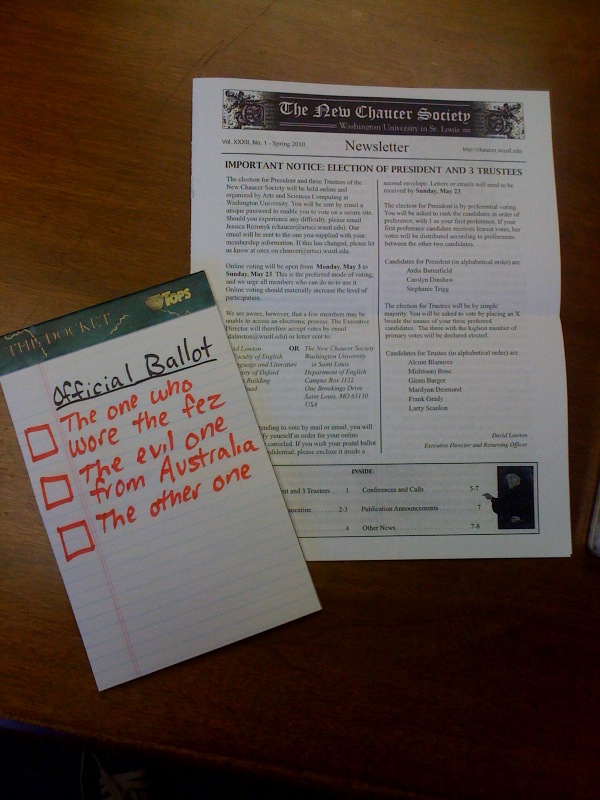 The New Chaucer Society
Washington University in St. Louis
Vol. XXXII, No. 1 - Spring 2010
Newsletter
http://chaucer.wustl.edu
IMPORTANT NOTICE: ELECTION OF PRESIDENT AND 3 TRUSTEES
The election for President and three Trustees of the
New Chaucer Society will be held online and
organized by Arts and Sciences Computing at
Washington University. You will be sent by email a
unique password to enable you to vote on a secure site.
Should you experience any difficulty, please email
Jessica Rezunyk (chaucer@artsci.wustl.edu). Our
email will be sent to the one you supplied with your
membership information. If this has changed, please let
us know at once on chaucer@artsci.wustl.edu.
Online voting will be open from Monday, May 3 to
Sunday, May 23. This is the preferred mode of voting,
and we urge all members who can do so to use it.
Online voting should materially increase the level of
participation.
We are aware, however, that a few members may be
unable to access an electronic process. The Executive
Director will therefore accept votes by email
dalawton@wustl.edu) or letter sent to:
Lawton
Faculty of English
Language and Literature
of Oxford
Building
OR
The New Chaucer Society
Washington University
in Saint Louis
Department of English
Campus Box 1122
One Brookings Drive
Saint Louis, MO 63130
USA
ending to vote by mail or email, you will
yourself in order for your online
canceled. If you wish your postal ballot
confidential, please enclose it inside a
second envelope. Letters or emails will need to be
received by Sunday, May 23.
The election for President is by preferential voting.
You will be asked to rank the candidates in order of
preference, with 1 as your first preference. If your
first preference candidate receives fewest votes, her
votes will be distributed according to preferences
between the other two candidates.
Candidates for President (in alphabetical order) are:
Ardis Butterfield
Carolyn Dinshaw
Stephanie Trigg
The election for Trustees will be by simple
majority. You will be asked to vote by placing an X
beside the names of your three preferred
candidates. The three with the highest number of
primary votes will be declared elected.
Candidates for Trustee (in alphabetical order) are:
Alcuin Blamires
Mishtooni Bose
Glenn Burger
Marilynn Desmond
Frank Grady
Larry Scanlon
David Lawton
Executive Director and Returning Officer
INSIDE:
ent and 3 Trustees 1
2-3
4
Conferences and Calls 5-7
Publication Announcements 7
Other News 7-8
THE DOCKET
TOPS
Official Ballot
The one who
wore the fez
The evil one
from Australia
The other one